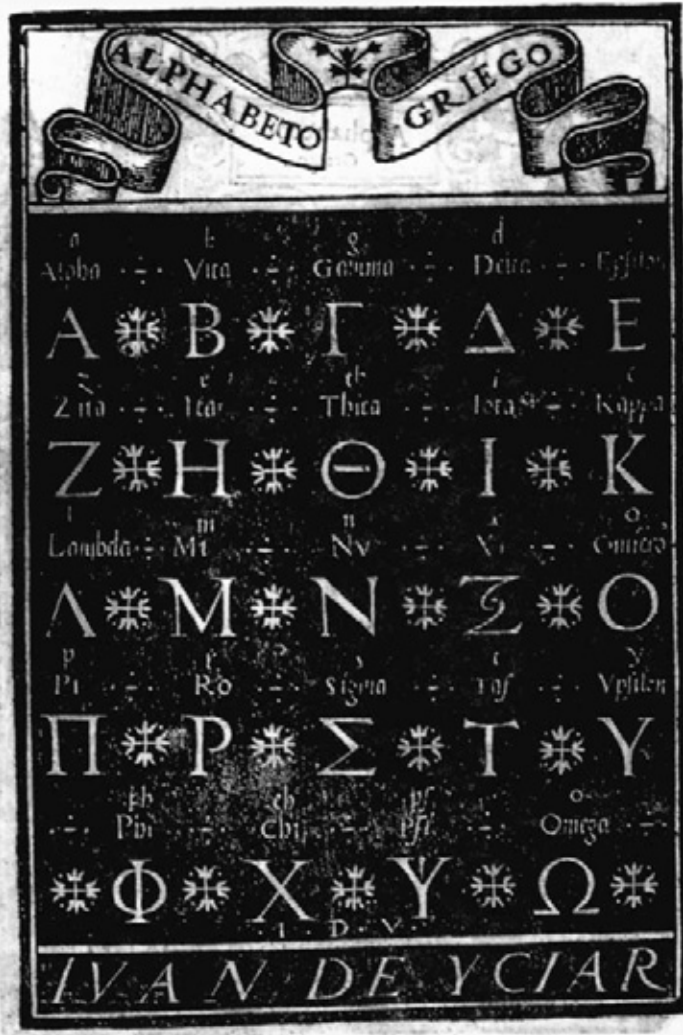 ALPHABETO GRIEGO
a b g d
Alpha Vita Gamma Delta Epsilon
Α Β Γ Δ Ε
z e th i c
Zita Ita Thita Iota Kappa
Ζ Η Θ Ι Κ
l m n x o
Lambda Mi Nv Xi Omicro
Λ Μ Ν Ξ Ο
p r s t y
Pi Ro Sigma Taf Vpsilon
Π Ρ Σ Τ Υ
ph ch ps o
Phi Chi Psi Omega
Φ Χ Ψ Ω
I · D · V ·
IVAN DE YCIAR